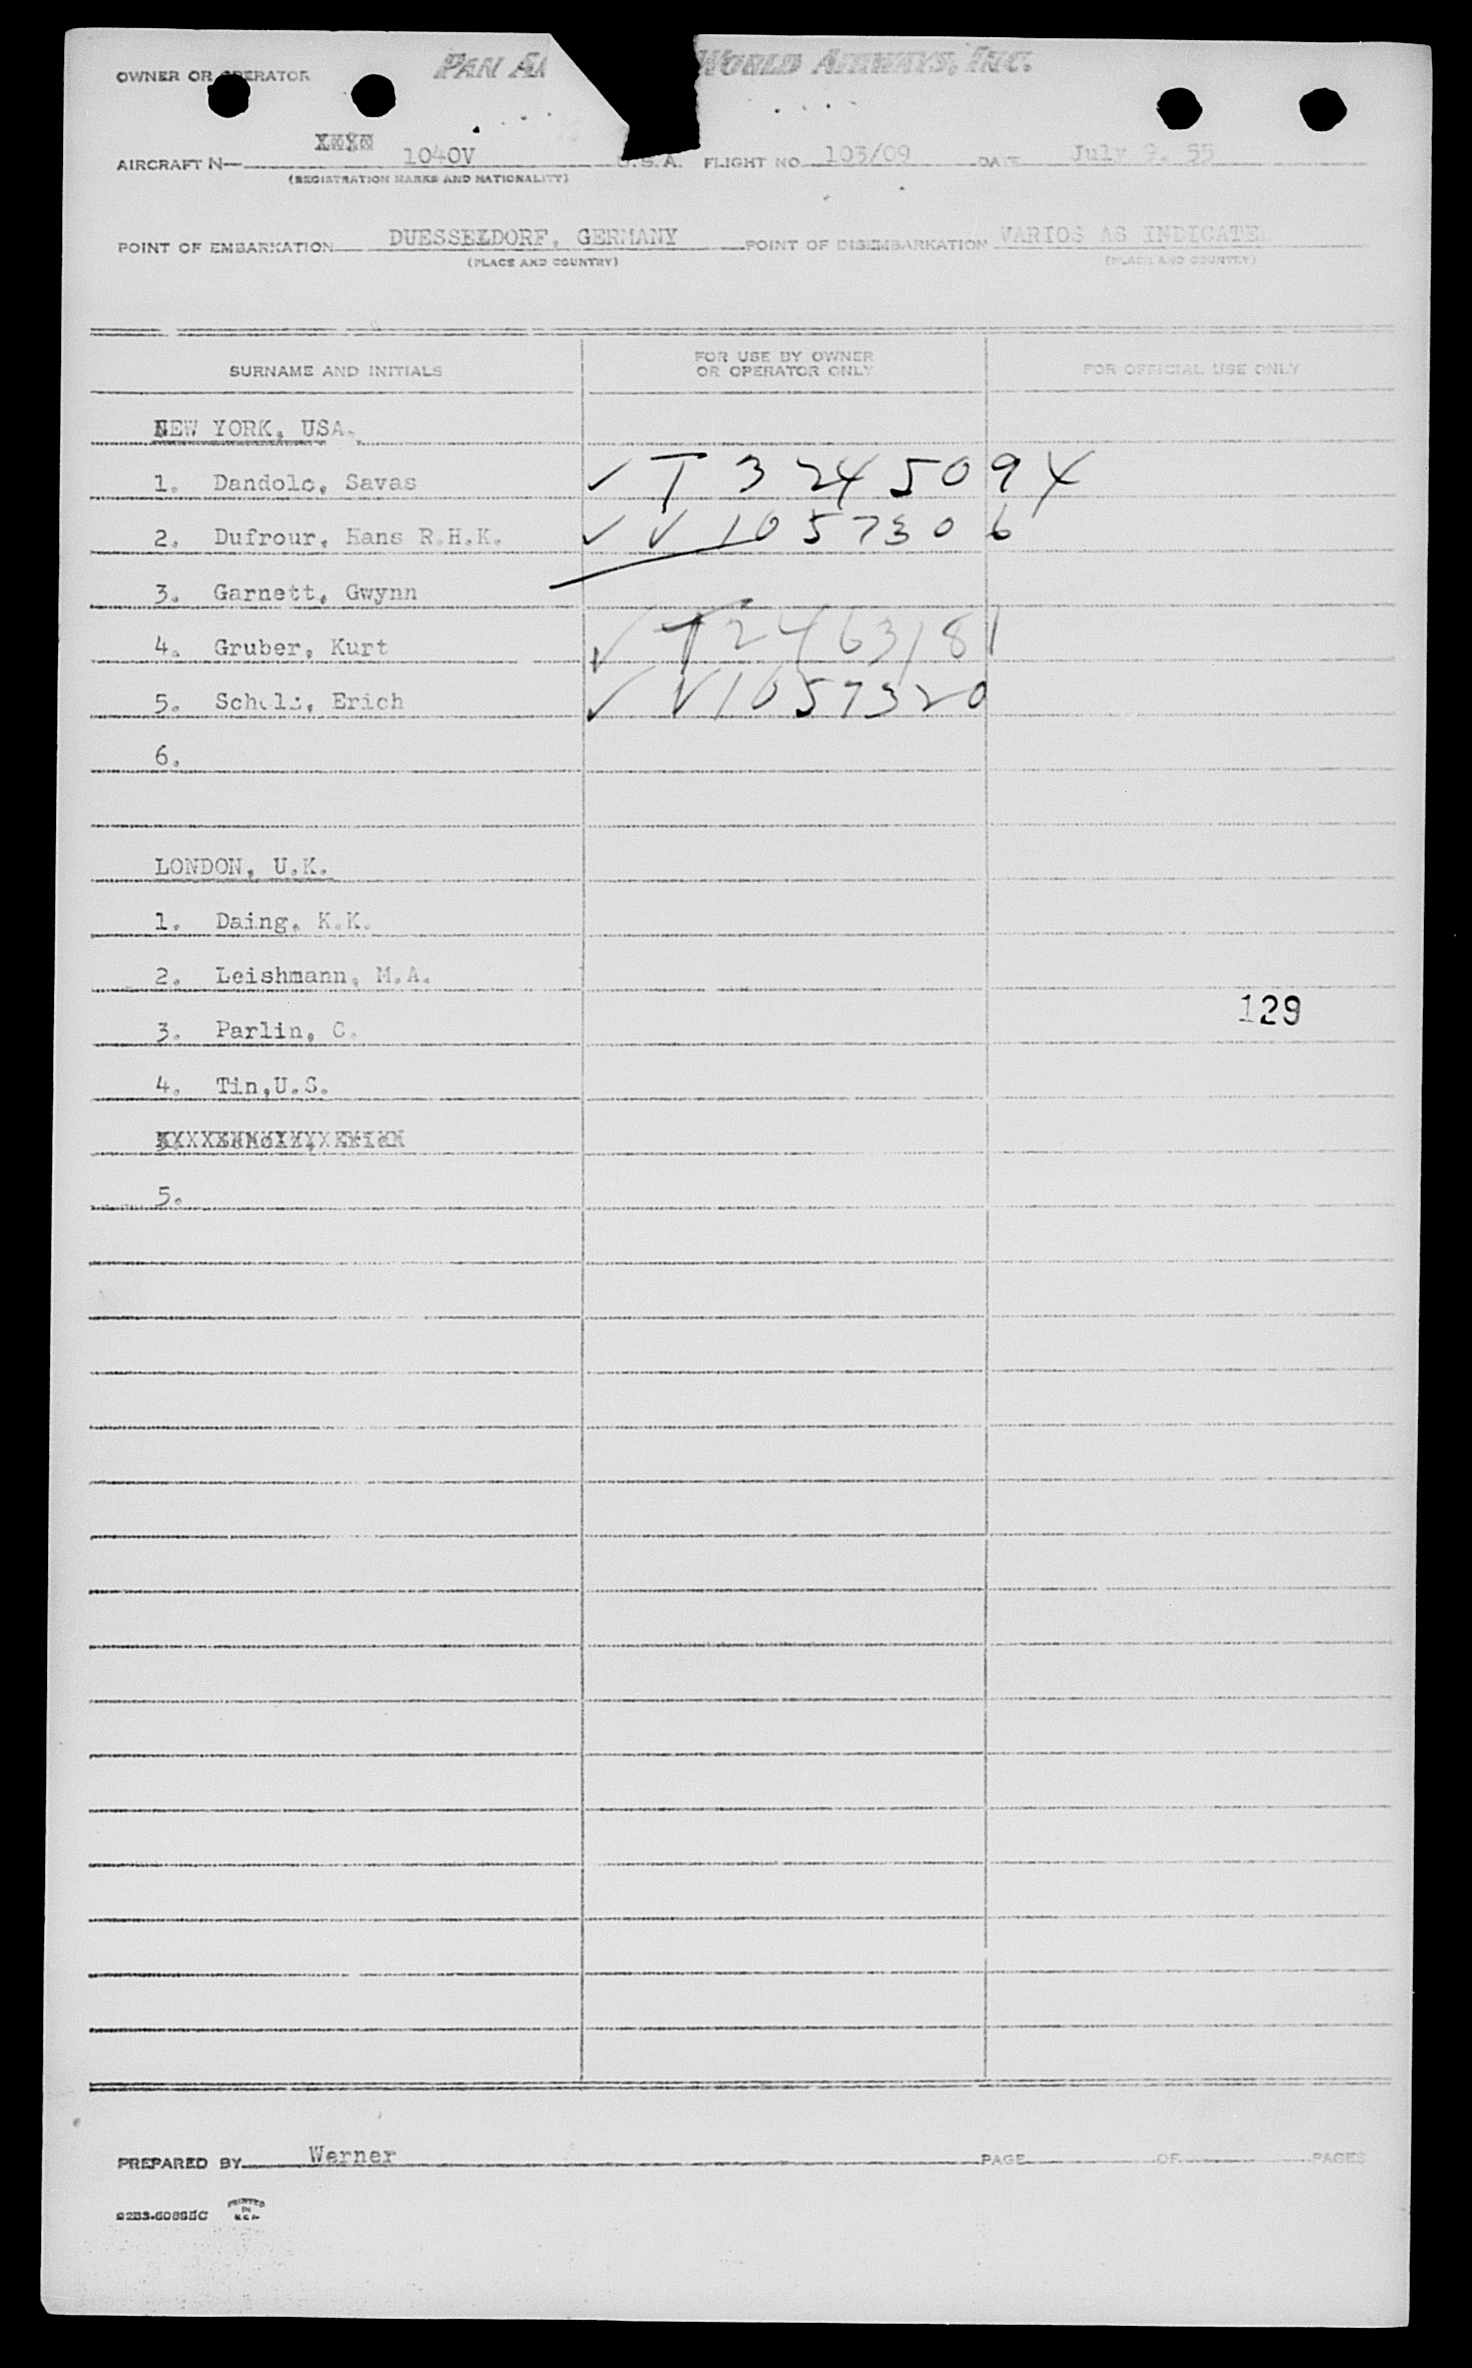 OWNER OR OPERATOR PAN AM WORLD AIRWAYS, INC.
AIRCRAFT N— 1040V U.S.A. FLIGHT NO. 103/09 DATE July 9, 55
(REGISTRATION MARKS AND NATIONALITY)
POINT OF EMBARKATION DUESSELDORF, GERMANY POINT OF DISEMBARKATION VARIOS AS INDICATED
(PLACE AND COUNTRY) (PLACE AND COUNTRY)
SURNAME AND INITIALS FOR USE BY OWNER OR OPERATOR ONLY FOR OFFICIAL USE ONLY
NEW YORK, USA.
1. Dandolo, Savas ✓ T 3245094
2. Dufrour, Hans R.H.K. ✓ V 1057306
3. Garnett, Gwynn
4. Gruber, Kurt ✓ T 2463181
5. Scholz, Erich ✓ V 1057320
6.
LONDON, U.K.
1. Daing, K.K.
2. Leishmann, M.A.
129
3. Parlin, C.
4. Tin,U.S.
5.
PREPARED BY Werner PAGE OF PAGES
PRINTED IN U.S.A.